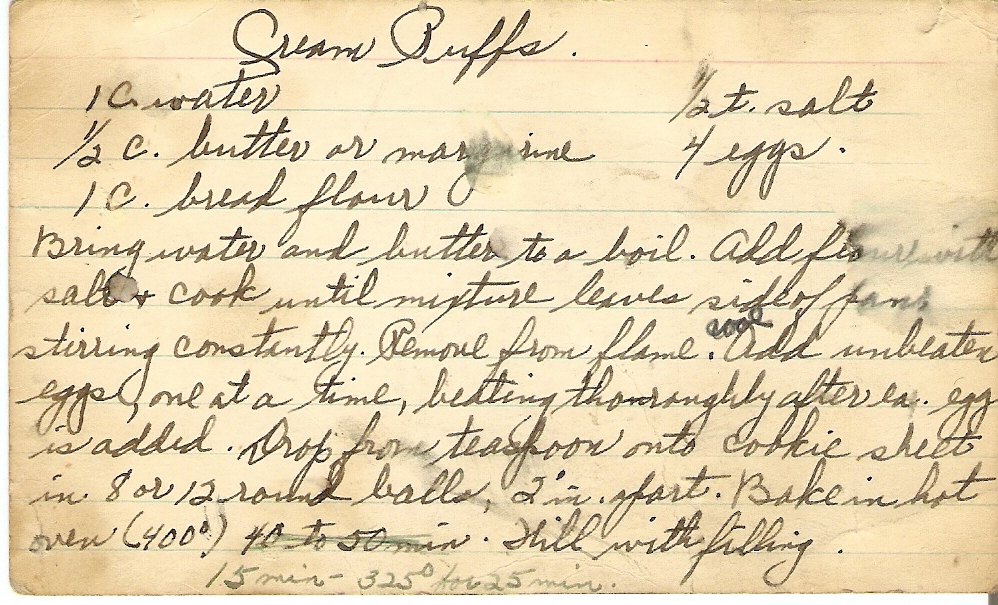 Cream Puffs.
1 C. water ½ t. salt
½ C. butter or margarine 4 eggs.
1 C. bread flour
Bring water and butter to a boil. Add flour with
salt & cook until mixture leaves side of pan,
cool
stirring constantly. Remove from flame. Add unbeaten
eggs, one at a time, beating thonroughly after ea. egg
is added. Drop from teaspoon onto cookie sheet
in 8 or 12 round balls, 2 in. apart. Bake in hot
oven (400°) 40 to 50 min. Fill with filling.
15 min - 325° for 25 min.